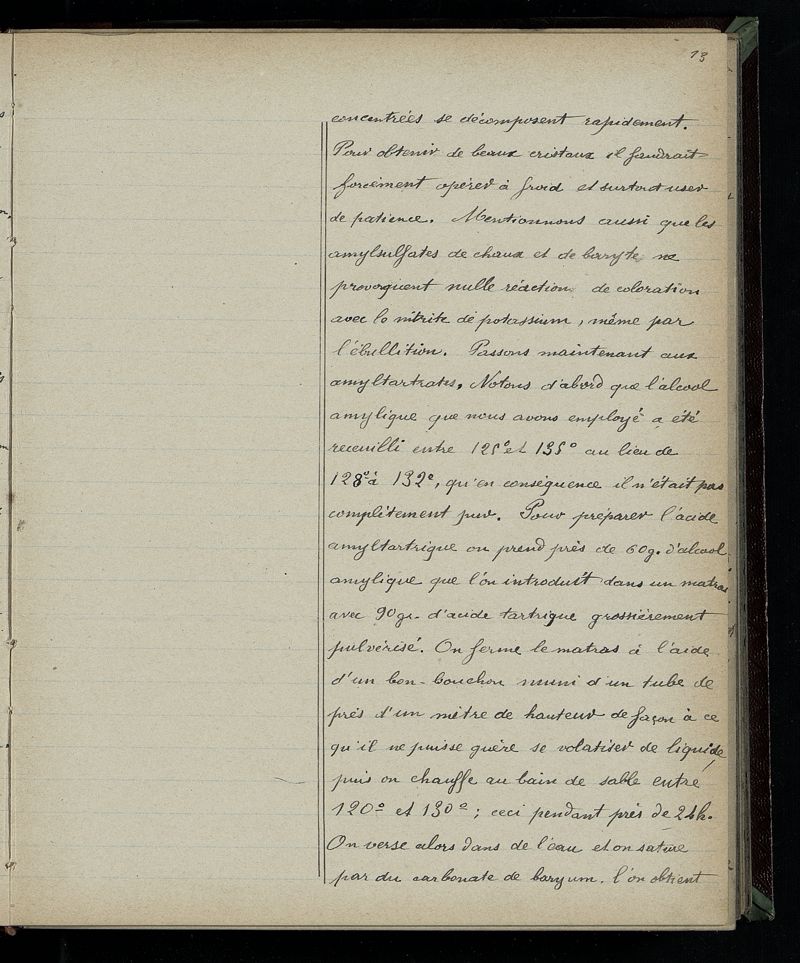 13
concentrées se décomposent rapidement.
Pour obtenir de beaux cristaux il faudrait
forcément opérer à froid et surtout user
de patience. Mentionnons aussi que les
amylsulfates de chaux et de baryte ne
provoquent nulle réaction de coloration
avec le nitrite de potassium, même par
l'ébullition. Passons maintenant aux
amyltartrates. Notons d'abord que l'alcool
amylique que nous avons employé a été
recueilli entre 125° et 135° au lieu de
128° à 132°, qu'en conséquence il n'était pas
complètement pur. Pour préparer l'acide
amyltartrique on prend près de 60g. d'alcool
amylique que l'on introduit dans un matras
avec 90gr. d'acide tartrique grossièrement
pulvérisé. On ferme le matras à l'aide
d'un bon-bouchon muni d'un tube de
près d'un mètre de hauteur de façon à ce
qu'il ne puisse guère se volatiser de liquide,
puis on chauffe au bain de sable entre
120° et 130°; ceci pendant près de 24h.
On verse alors dans de l'eau et on sature
par du carbonate de baryum. l'on obtient